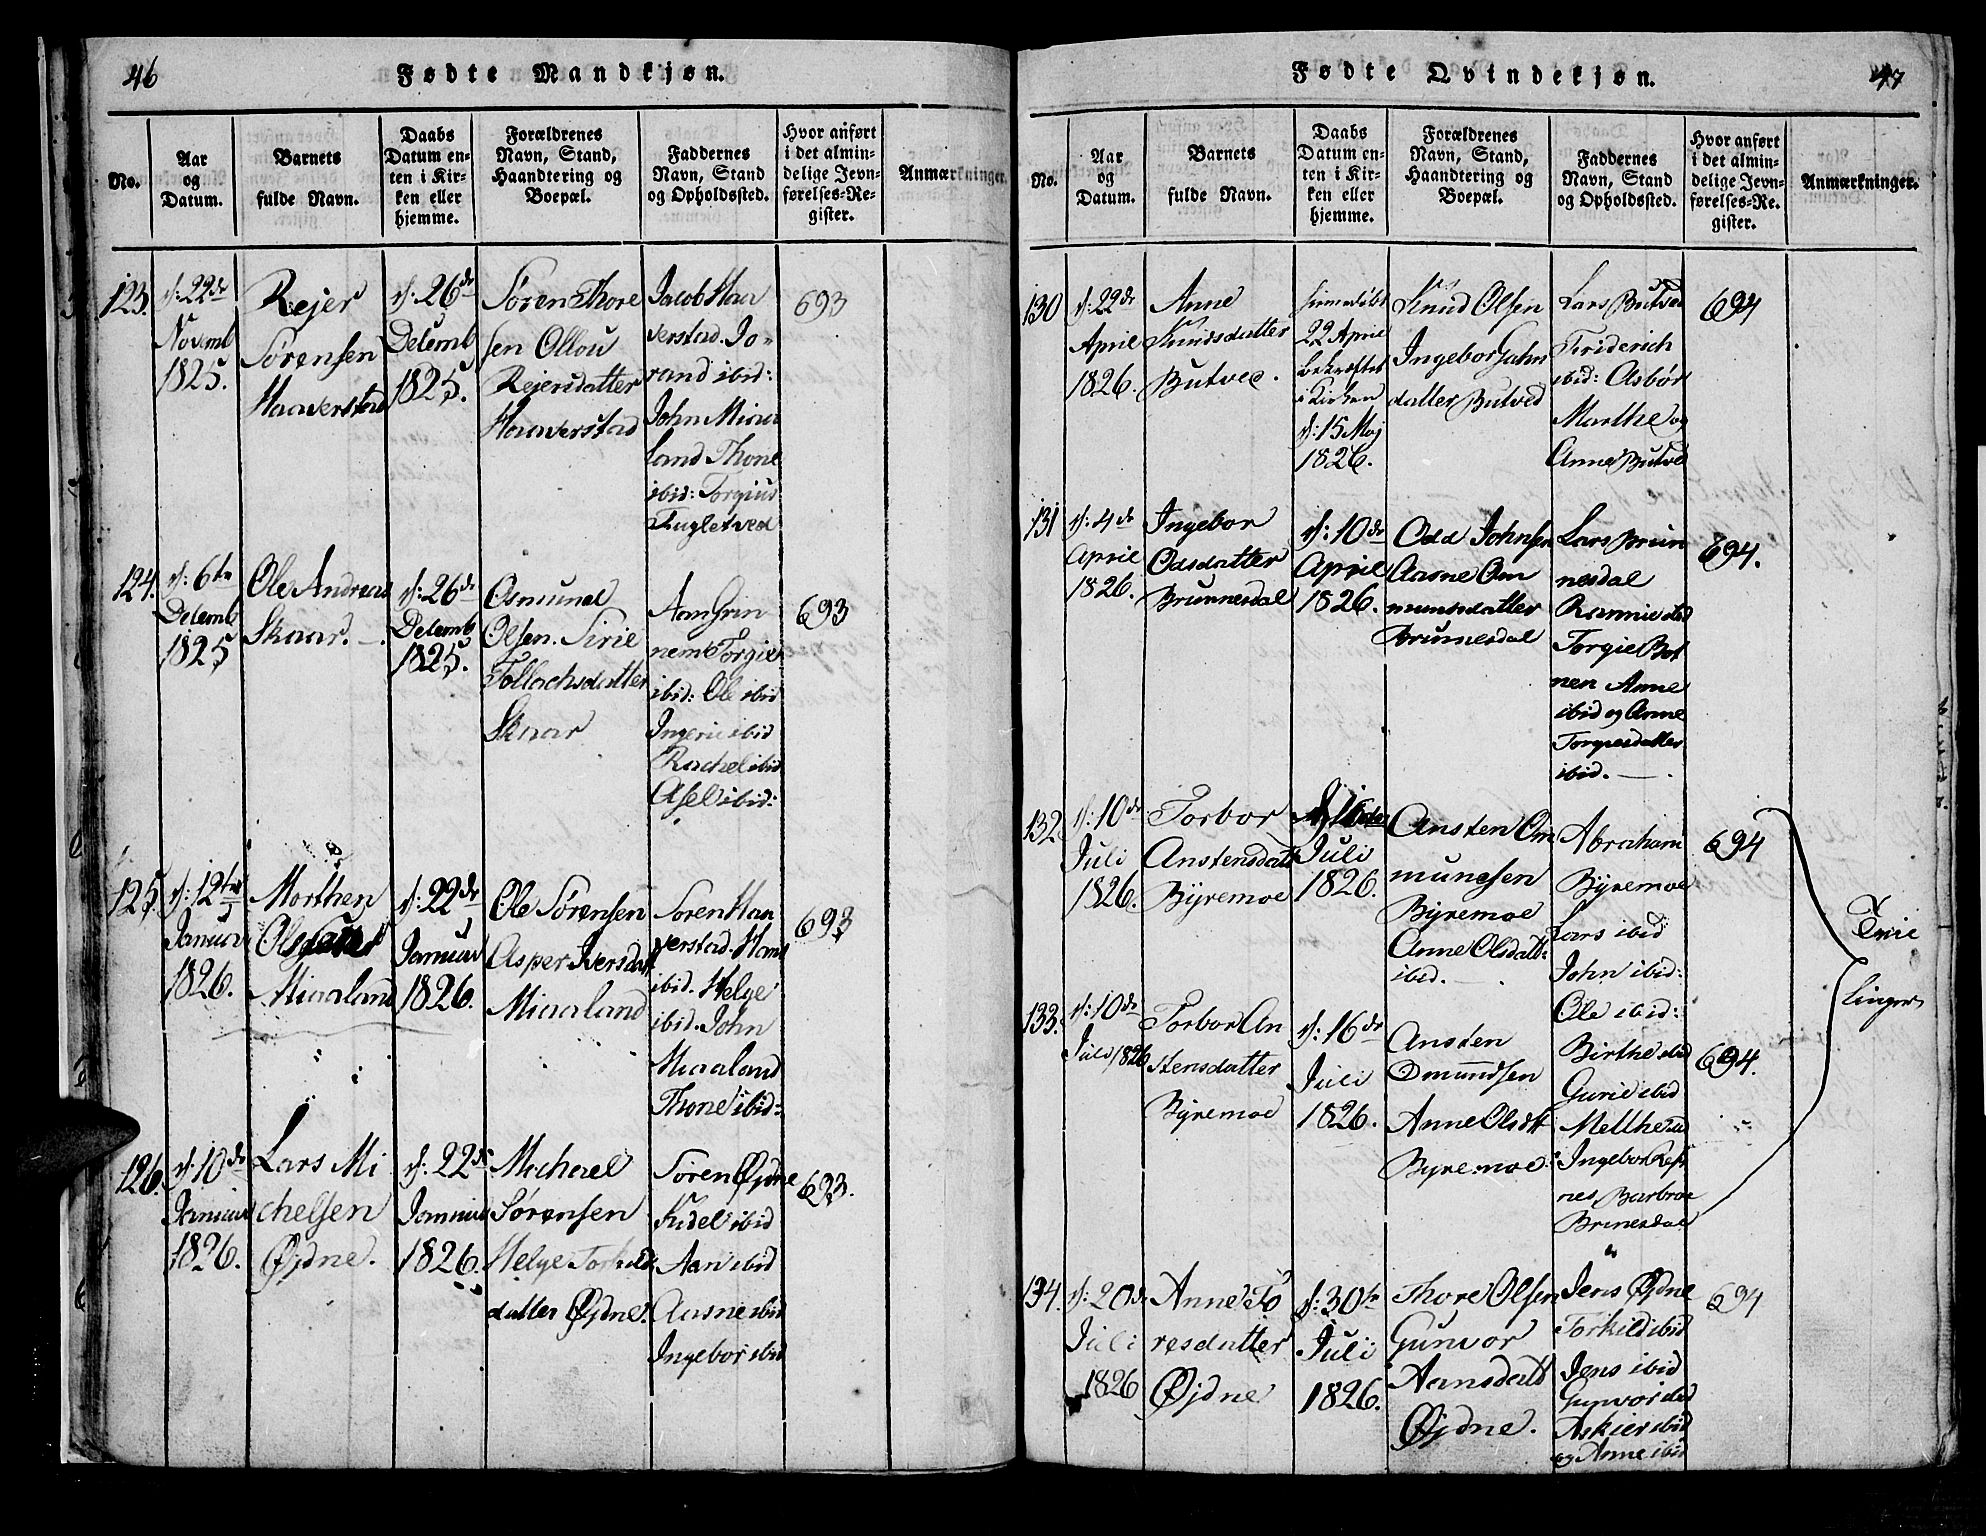 46
Fødte Mandkjøn.
No.
Aar
og
Datum.
Barnets
fulde Navn.
Daabs
Datum en-
ten i Kir-
ken eller
hjemme.
Forældrenes
Navn, Stand,
Haandtering og
Boepæl.
Faddernes
Navn, Stand
og Opholdssted.
Hvor anført
i det almin-
delige Jevn-
førelses-Re-
gister.
Anmærkninger.
123.
d: 22de
Novemb
1825.
Rejer
Sørensen
Haaverstad
d: 26de
Desemb
1825.
Søren Thore
sen Ollou
Rejersdatter
Haaverstad
Jacob Haa
verstad. Jo-
rand ibid:
John Miaa
land Thone
ibid: Torgius
Fugletved
693
124.
d: 6te
Desemb
1825
Ole Andreas
Skaar. —
d: 26de
Desemb
1825.
Osmund
Olsen. Sirie
Tollachsdatter
Skaar
Aan Grin
nem Torgier
ibid: Ole ibid
Ingerie ibid
Rachel ibid
Asel ibid:
693
125.
d: 12te
Januar
1826.
Morthen
Miaaland
d: 22de
Januar
1826.
Ole Sørensen
Asper Iversdatt
Miaaland
Soren Haa
verstad. Hans
ibid. Helge
ibid. John
Miaaland
Thone ibid:
693
126.
d: 10de
Januar
1826.
Lars Mi
chelsen
Øjdne.
d: 22de
Januar
1826.
Michael
Sørensen
Helge Torkilds
datter Øjdne.
Søren Øjdne
Fidel ibid
Aan ibid
Aasne ibid
Ingebor ibid
693.
47
Fødte Qvindekjøn.
No.
Aar
og
Datum.
Barnets
fulde Navn.
Daabs
Datum en-
ten i Kir-
ken eller
hjemme.
Forældrenes
Navn, Stand,
Haandtering og
Boepæl.
Faddernes
Navn, Stand
og Opholdssted.
Hvor anført
i det almin-
delige Jevn-
førelses-Re-
gister.
Anmærkninger.
130
d: 22de
April
1826.
Anne
Knudsdatter
Butved.
hiemedøbt
22 April
bekræftet
i Kirken
d: 15 Maj
1826.
Knud Olsen
Ingebor Jahn
datter Butved
Lars Butved
Friderich
ibid: Asbør
Marthe og
Anne Butved
694
131
d: 4de
April
1826.
Ingebor
Odsdatter
Brunnesdal
d: 10de
April
1826.
Odd Johnsen
Aasne Om
munsdatter
Brunnesdal
Lars Brun
nesdal
Rannie ibid
Torgie Bot
nen Anne
ibid og Anne
Torgiesdatter
ibid. —
694.
132
d: 10de
Juli
1826.
Torbor
Anstensdatt
Byremoe
d: 16de
Juli
1826.
Ansten Om
munsen
Byremoe
Anne Olsdatt:
ibid. —
Abraham
Byremoe
Lars ibid
John ibid:
Ole ibid:
694
133.
d: 10de
Juli 1826
Torbor An
stensdatter
Byremoe
d: 16de
Juli
1826.
Ansten
Omundsen
Anne Olsdtt
Byremoe.
Birthe ibid
Gurie ibid
Ingebor Refs
nes Barbroe
Brunesdal
694.
Tvil
linger
134.
d: 20de
Juli
1826
Anne To
resdatter
Øjdne
d: 30te
Juli
1826.
Thore Olsen
Gunvor
Aansdatt
Øjdne.
Jens Øjdne
Torkild ibid
Jens ibid
Gunvor ibid
Askier ibid
og Anne ibid
694